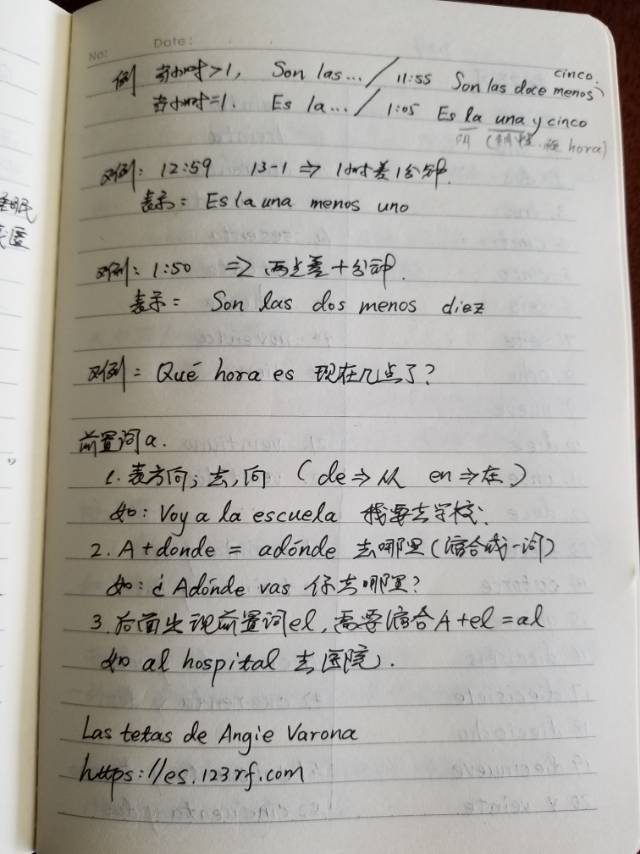 No:
Date:
例 当小时>1, Son las... / 11:55 Son las doce menos cinco.
当小时=1. Es la... / 1:05 Es la una y cinco
阴 hora)
对例: 12:59 13-1 ⇒ 1小时差1分钟.
表示: Es la una menos uno
对例: 1:50 ⇒ 两点差十分钟.
表示: Son las dos menos diez
对例: Qué hora es 现在几点了?
前置词 a.
1. 表方向; 去, 向 (de ⇒ 从 en ⇒ 在)
如: Voy a la escuela 我要去学校.
2. A + donde = adónde 去哪里 (缩合成一词)
如: ¿Adónde vas 你去哪里?
3. 后面出现前置词el, 需要缩合 A+el = al
如 al hospital 去医院.
Las tetas de Angie Varona
https://es.123rf.com